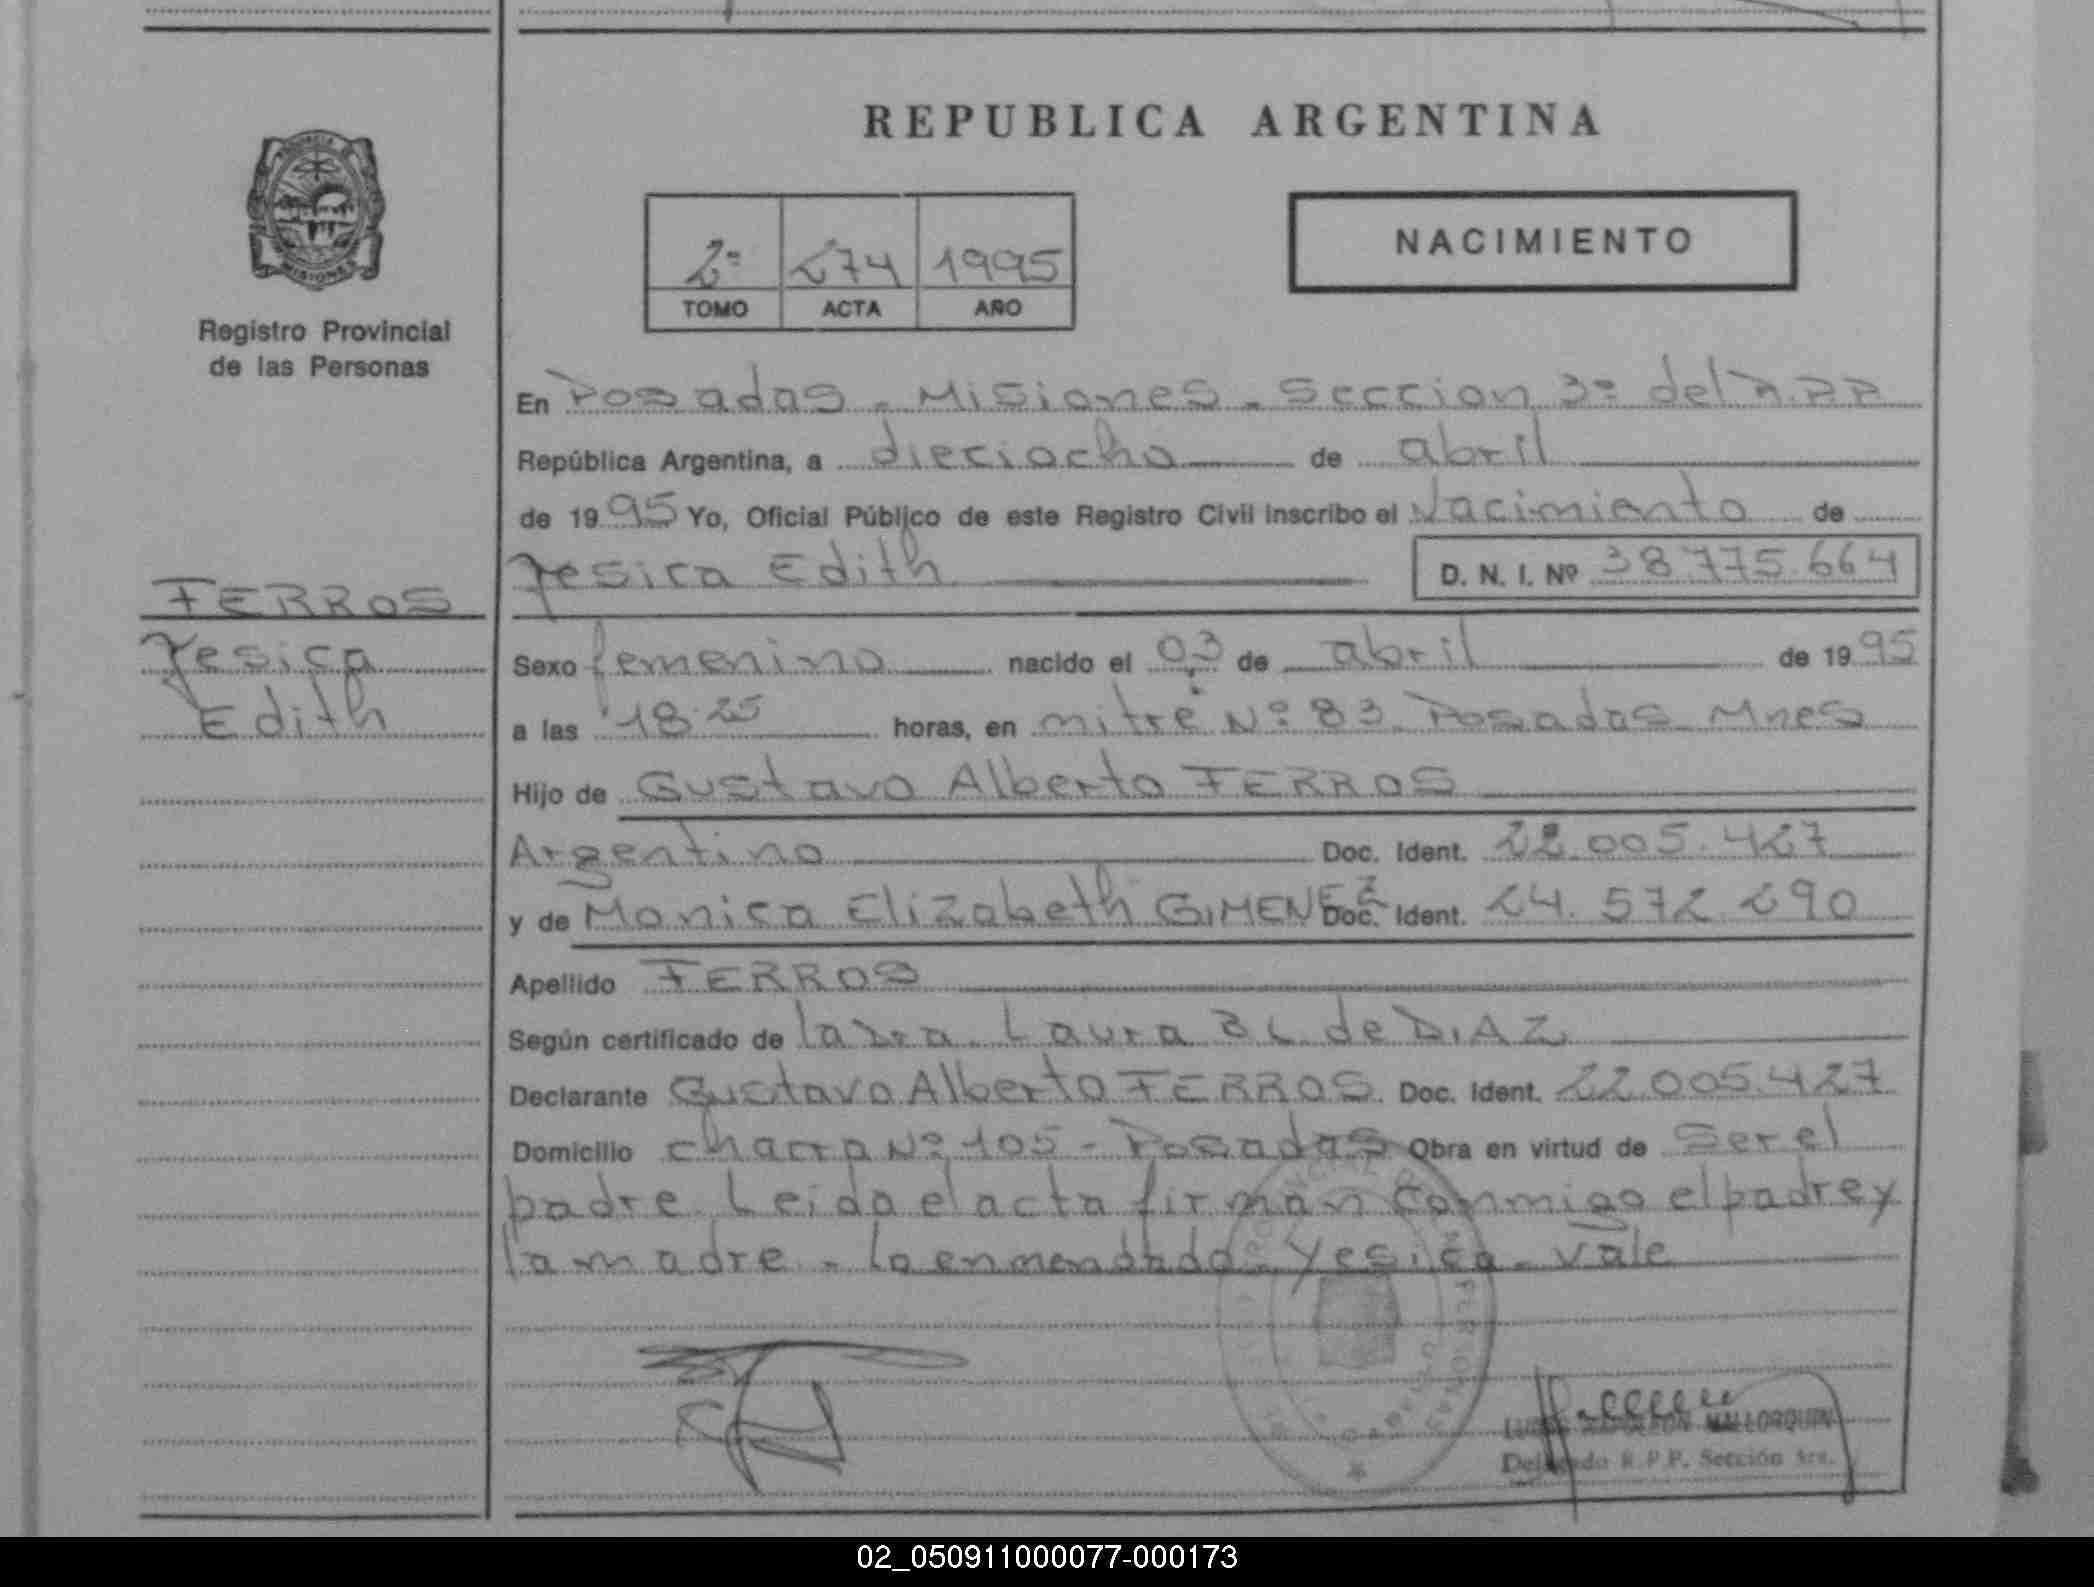 REPUBLICA ARGENTINA
PROVINCIA DE
MISIONES
Registro Provincial
de las Personas
2º 274 1995
TOMO ACTA AÑO
NACIMIENTO
En Posadas - Misiones - Seccion 3º del R.P.P
República Argentina, a dieciocho de abril
de 1995 Yo, Oficial Público de este Registro Civil inscribo el Nacimiento de
Yesica Edith D. N. I. Nº 38.775.664
FERROS
Yesica
Edith
Sexo femenino nacido el 03 de abril de 1995
a las 18.25 horas, en mitre Nº 83 Posadas Mnes
Hijo de Gustavo Alberto FERROS
Argentino Doc. Ident. 22.005.427
y de Monica Elizabeth GIMENEZ Doc. Ident. 24.572.290
Apellido FERROS
Según certificado de la Dra. Laura B L de DIAZ
Declarante Gustavo Alberto FERROS. Doc. Ident. 22.005.427
Domicilio chacra Nº 105 - Posadas Obra en virtud de ser el
padre. Leida el acta firman conmigo el padre y
la madre - Lo enmendado - Yesica - Vale
MALLORQUIN
Delegado R.P.P. Sección 3ra.
02_050911000077-000173